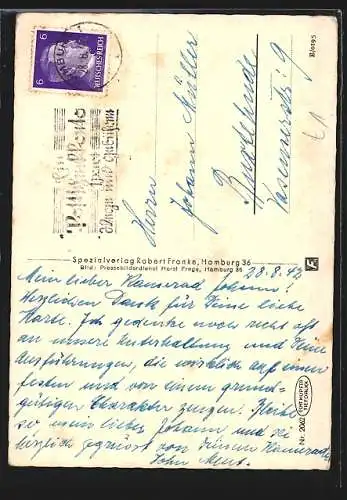 6
DEUTSCHES REICH
6
Ein
Postscheckkonto
Dein
Weg und Gebühren
Herrn
Johann Müller
Buxtehude
B/0195
Spezialverlag Robert Franke, Hamburg 36
Bild: Pressebilderdienst Horst Prange, Hamburg 36
28.8.42
Mein lieber Kamerad Johann!
Herzlichen Dank für Deine liebe
Karte. Ich gedenke noch recht oft
an unsere Unterhaltung und Deine
Ausführungen, die wirklich auf einen
festen und von einem grund-
gütigen Charakter zeugen. Bleibe
so mein lieber Johann und sei
herzlich gegrüsst von Deinem Kameraden
John
Nr. 2062